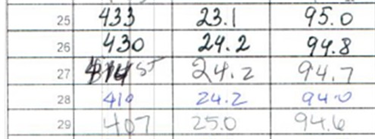 25 433 23.1 95.0
26 430 24.2 94.8
27 24.2 94.7
28 410 24.2 94.0
29 407 25.0 94.6